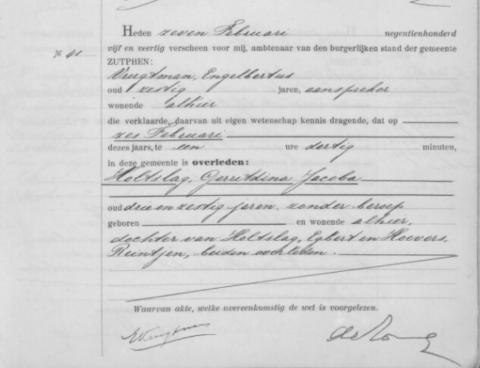 Heden zeven Februari negentienhonderd
N 41
vijf en veertig verscheen voor mij, ambtenaar van den burgerlijken stand der gemeente
ZUTPHEN:
Vrugtman, Engelbertus
oud zestig jaren, aanspreker
wonende alhier
die verklaarde, daarvan uit eigen wetenschap kennis dragende, dat op
zes Februari
dezes jaars, te een ure dertig minuten,
in deze gemeente is overleden:
Holtslag, Gerritdina Jacoba
oud drie en zestig jaren, zonder beroep
geboren en wonende alhier,
dochter van Holtslag, Egbert en Hoevers,
Reintjen, beiden overleden.
Waarvan akte, welke overeenkomstig de wet is voorgelezen.
EVrugtman